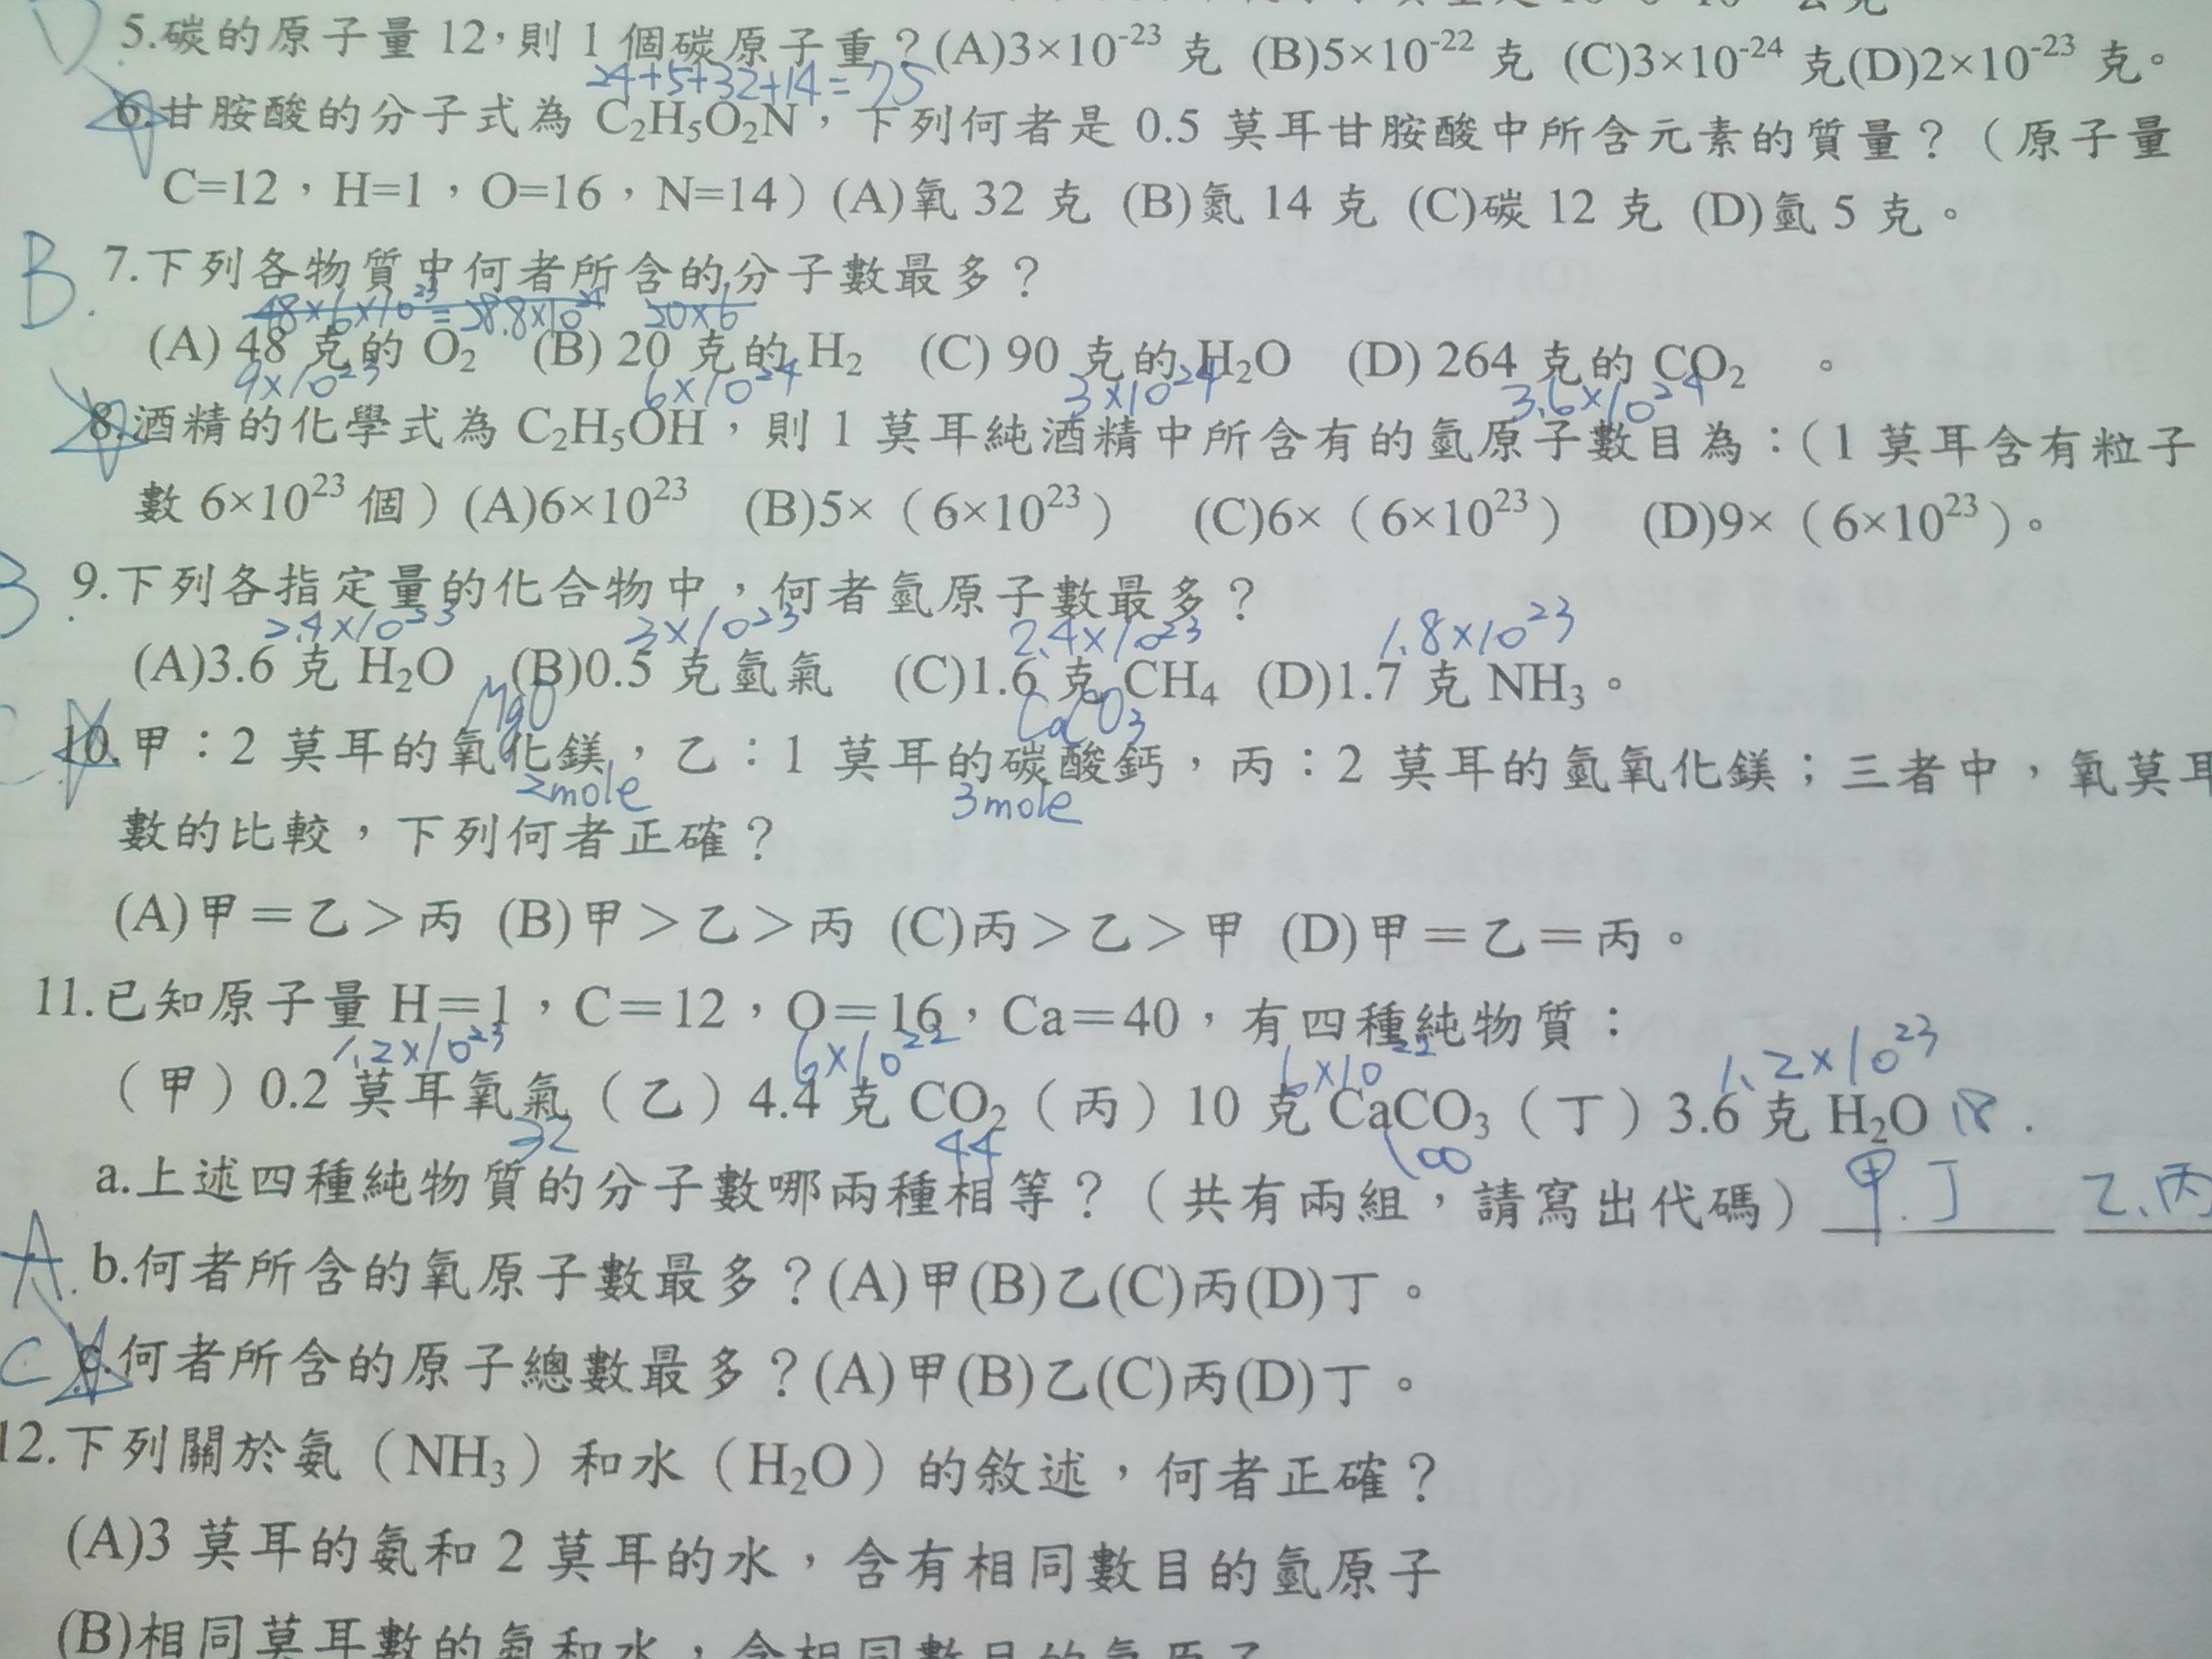 D 5.碳的原子量12,則1個碳原子重?(A)3×10⁻²³ 克 (B)5×10⁻²² 克 (C)3×10⁻²⁴ 克(D)2×10⁻²³ 克。
24+5+32+14=75
6.甘胺酸的分子式為 C₂H₅O₂N,下列何者是 0.5 莫耳甘胺酸中所含元素的質量?(原子量
C=12,H=1,O=16,N=14)(A)氧 32 克 (B)氮 14 克 (C)碳 12 克 (D)氫 5 克。
B. 7.下列各物質中何者所含的分子數最多?
48×6×10²³=28.8×10²⁴ 20×6
(A) 48 克的 O₂ (B) 20 克的 H₂ (C) 90 克的 H₂O (D) 264 克的 CO₂ 。
9×10²³ 6×10²⁴ 3×10²⁴ 3.6×10²⁴
8.酒精的化學式為 C₂H₅OH,則 1 莫耳純酒精中所含有的氫原子數目為:(1 莫耳含有粒子
數 6×10²³ 個)(A)6×10²³ (B)5×(6×10²³) (C)6×(6×10²³) (D)9×(6×10²³)。
B. 9.下列各指定量的化合物中,何者氫原子數最多?
2.4×10²³ 3×10²³ 2.4×10²³ 1.8×10²³
(A)3.6 克 H₂O (B)0.5 克氫氣 (C)1.6 克 CH₄ (D)1.7 克 NH₃。
MgO CaCO₃
C 10.甲:2 莫耳的氧化鎂,乙:1 莫耳的碳酸鈣,丙:2 莫耳的氫氧化鎂;三者中,氧莫耳
2mole 3mole
數的比較,下列何者正確?
(A)甲=乙>丙 (B)甲>乙>丙 (C)丙>乙>甲 (D)甲=乙=丙。
11.已知原子量 H=1,C=12,O=16,Ca=40,有四種純物質:
1.2×10²³ 6×10²² 6×10²² 1.2×10²³
(甲)0.2 莫耳氧氣(乙)4.4 克 CO₂(丙)10 克 CaCO₃(丁)3.6 克 H₂O 18.
32 44 100
a.上述四種純物質的分子數哪兩種相等?(共有兩組,請寫出代碼) 甲.丁 乙、丙
A. b.何者所含的氧原子數最多?(A)甲(B)乙(C)丙(D)丁。
C c.何者所含的原子總數最多?(A)甲(B)乙(C)丙(D)丁。
12.下列關於氨(NH₃)和水(H₂O)的敘述,何者正確?
(A)3 莫耳的氨和 2 莫耳的水,含有相同數目的氫原子
(B)相同莫耳數的氨和水,含相同數目的氫原子